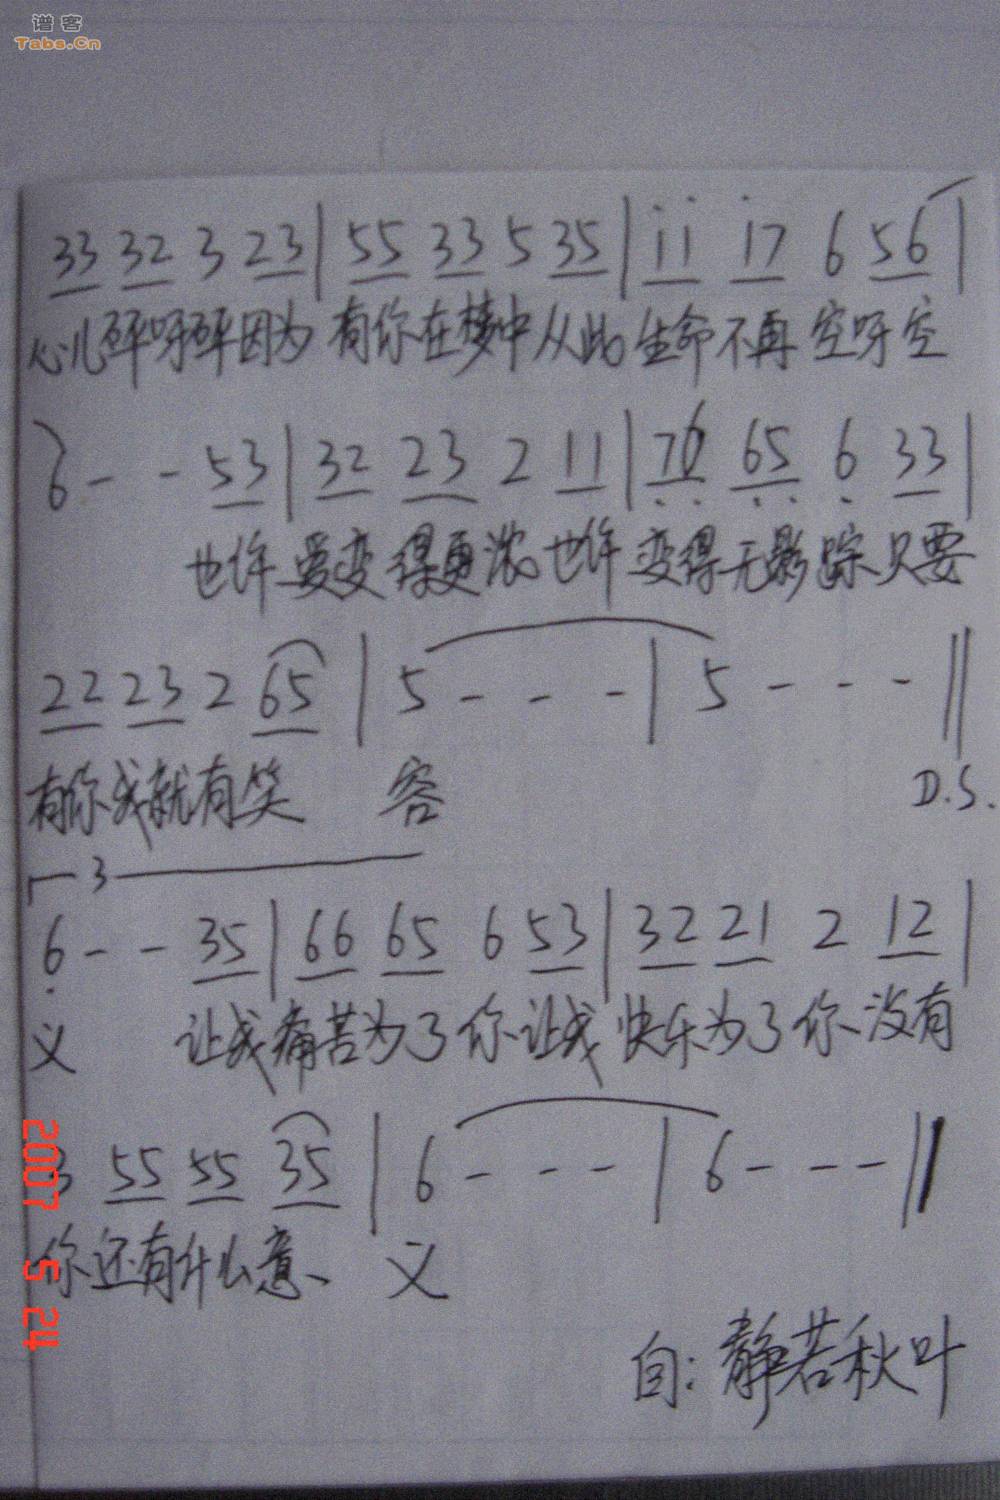 谱客
Tabs.Cn
33 32 3 23 | 55 33 5 35 | 11 17 6 56 |
心儿砰呀砰因为 有你在梦中从此 生命不再空呀空
6 - - 53 | 32 23 2 11 | 76 65 6 33 |
也许 爱变得更浓也许 变得无影踪只要
22 23 2 65 | 5 - - - | 5 - - - ||
有你我就有笑 容 D.S.
3
6 - - 35 | 66 65 6 53 | 32 21 2 12 |
义 让我痛苦为了你让我 快乐为了你没有
3 55 55 35 | 6 - - - | 6 - - - ||
你还有什么意 义
自:静若秋叶
2007 5 24